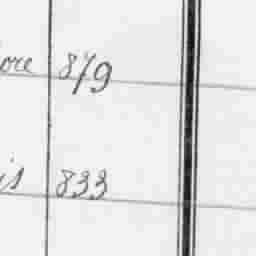 ore 879
is 833